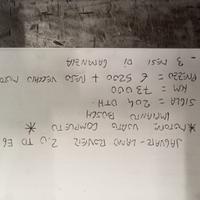 JAGUAR - LAND ROVER 2.0 TD E6
* MOTORE USATO COMPLETO *
IMPIANTO BOSCH
SIGLA = 204 DTH
KM = 73 000
PREZZO = € 5250 + RESO VECCHIO MOTORE
- 3 MESI DI GARANZIA